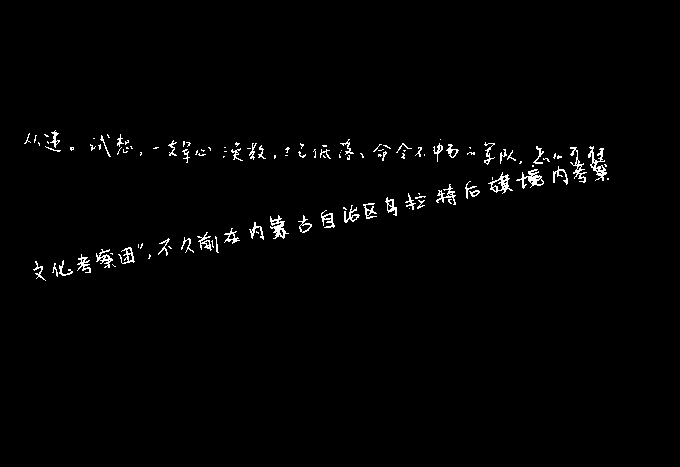 从违。试想,一支军心涣散,士气低落、命令不畅的军队,怎么可能
文化考察团",不久前在内蒙古自治区乌拉特后旗境内考察